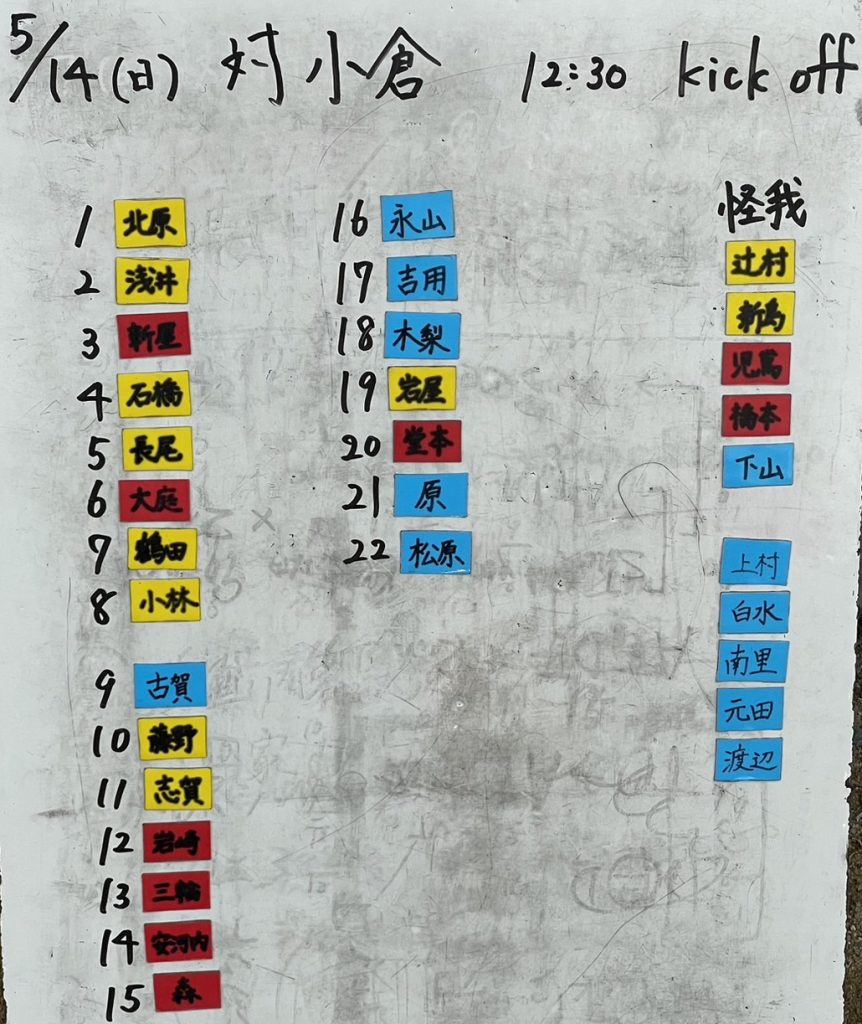 5/14(日) 対 小倉 12:30 kick off
1 北原
2 浅井
3 新屋
4 石橋
5 長尾
6 大庭
7 鶴田
8 小林
9 古賀
10 藤野
11 志賀
12 岩崎
13 三輪
14 安河内
15 森
16 永山
17 吉用
18 木梨
19 岩屋
20 堂本
21 原
22 松原
怪我
辻村
新島
児島
橋本
下山
上村
白水
南里
元田
渡辺